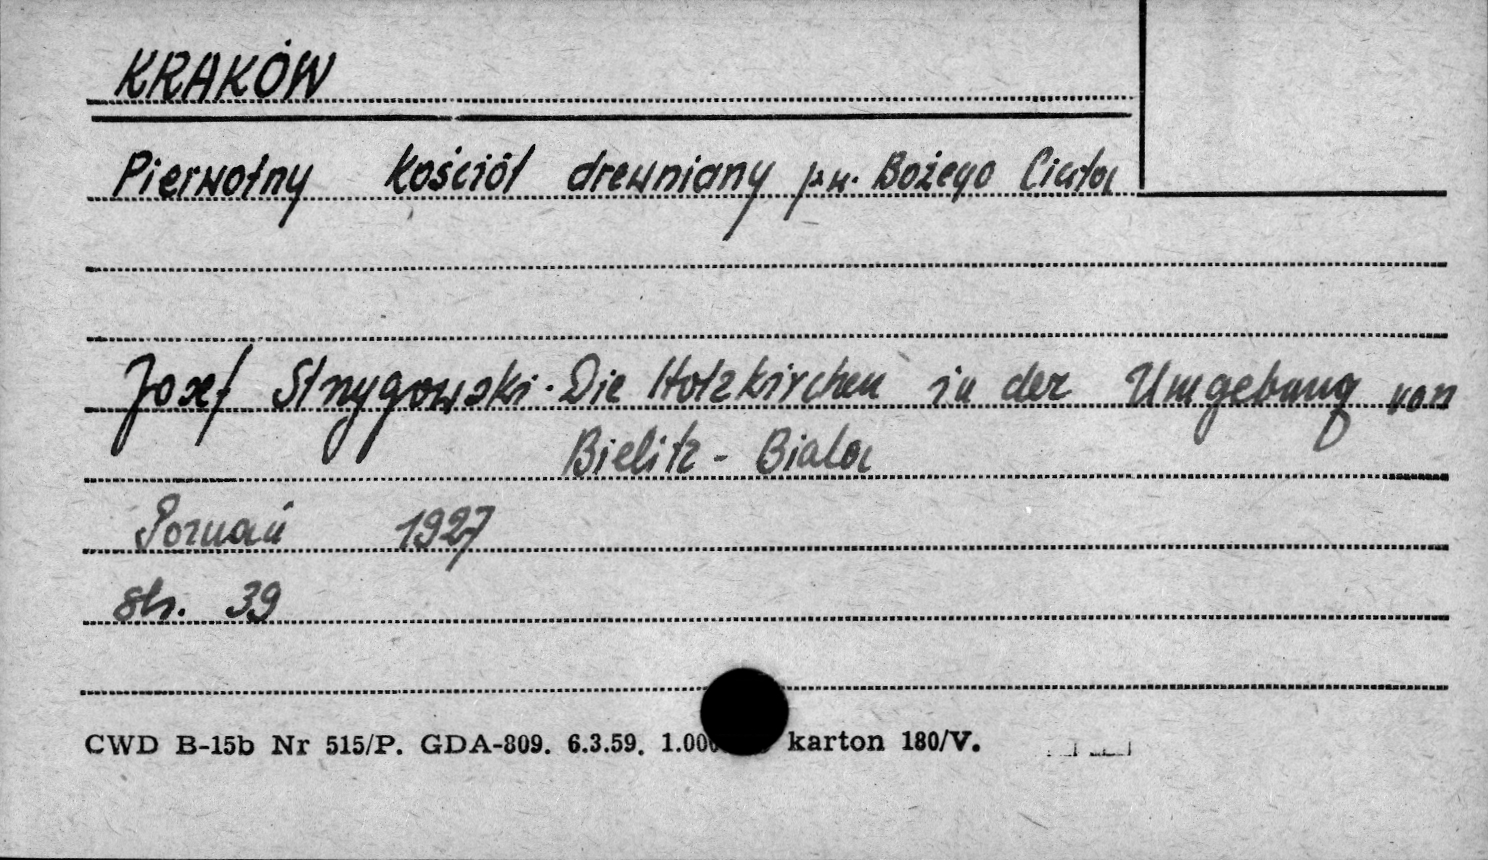 KRAKÓW
Pierwotny kościół drewniany p.w. Bożego Ciała
Josef Strzygowski. Die Holzkirchen in der Umgebung von
Bielitz - Biala
Poznań 1927
str. 39
CWD B-15b Nr 515/P. GDA-809. 6.3.59. karton 180/V.